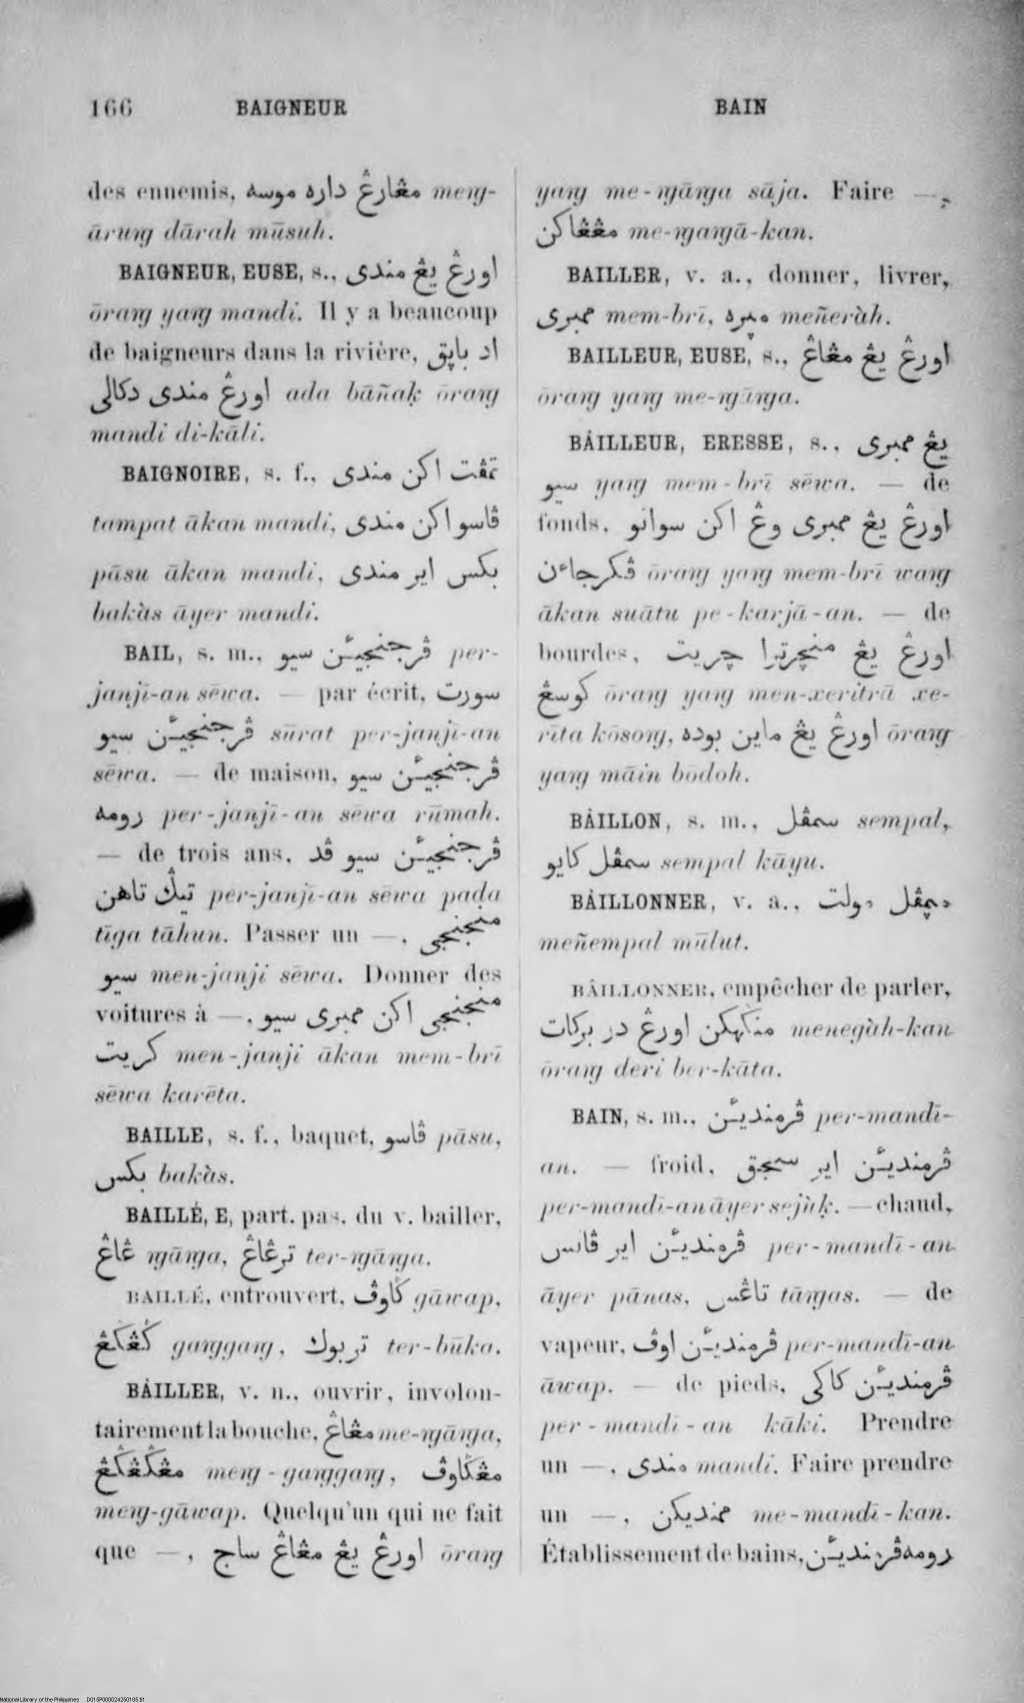 166 BAIGNEUR BAIN
des ennemis, مڠارڠ داره موسه meng-
ārung dārah mūsuh.
BAIGNEUR, EUSE, s., اورڠ يڠ مندى
ōrang yang mandi. Il y a beaucoup
de baigneurs dans la rivière, اد باپق
اورڠ مندى دكالى ada bāñaḳ ōrang
mandi di-kāli.
BAIGNOIRE, s. f., تمڤت اكن مندى
tampat ākan mandi, ڤاسو اكن مندى
pāsu ākan mandi, بكس اير مندى
bakàs āyer mandi.
BAIL, s. m., ڤرجنجيئن سيو per-
janjī-an sēwa. — par écrit, سورت
ڤرجنجيئن سيو sūrat per-janjī-an
sēwa. — de maison, ڤرجنجيئن سيو
رومه per-janjī-an sēwa rūmah.
— de trois ans, ڤرجنجيئن سيو ڤد
تيݢ تاهن per-janjī-an sēwa paḍa
tīga tāhun. Passer un —, منجنجى
سيو men-janji sēwa. Donner des
voitures à —, منجنجى اكن ممبرى سيو
كريت men-janji ākan mem-brī
sēwa karēta.
BAILLE, s. f., baquet, ڤاسو pāsu,
بكس bakàs.
BAILLÉ, E, part. pas. du v. bailler,
ڠاڠ ngānga, ترڠاڠ ter-ngānga.
BAILLÉ, entrouvert, ݢاوڤ gāwap,
ݢڠݢڠ ganggang, تربوك ter-būka.
BÂILLER, v. n., ouvrir, involon-
tairement la bouche, مڠاڠ me-ngānga,
مڠݢڠݢڠ meng-ganggang, مڠݢاوڤ
meng-gāwap. Quelqu'un qui ne fait
que —, اورڠ يڠ مڠاڠ ساج ōrang
yang me-ngānga sāja. Faire —,
مڠڠاكن me-ngangā-kan.
BAILLER, v. a., donner, livrer,
ممبرى mem-brī, مپره meñeràh.
BAILLEUR, EUSE, s., اورڠ يڠ مڠاڠ
ōrang yang me-ngānga.
BÂILLEUR, ERESSE, s., يڠ ممبرى
سيو yang mem-brī sēwa. — de
fonds, اورڠ يڠ ممبرى وڠ اكن سواتو
ڤكرجاءن ōrang yang mem-brī wang
ākan suātu pe-karjā-an. — de
bourdes, اورڠ يڠ منچرترا چريت
كوسڠ ōrang yang men-xeritrā xe-
rīta kōsong, اورڠ يڠ ماين بوده ōrang
yang māin bōdoh.
BÂILLON, s. m., سمڤل sempal,
سمڤل كايو sempal kāyu.
BÂILLONNER, v. a., مپمڤل مولت
meñempal mūlut.
BÂILLONNER, empêcher de parler,
منݢهكن اورڠ در بركات menegàh-kan
ōrang deri ber-kāta.
BAIN, s. m., ڤرمنديئن per-mandī-
an. — froid, ڤرمنديئن اير سجق
per-mandī-an āyer sejùḳ. — chaud,
ڤرمنديئن اير ڤانس per-mandī-an
āyer pānas, تاڠس tāngas. — de
vapeur, ڤرمنديئن اوڤ per-mandī-an
āwap. — de pieds, ڤرمنديئن كاكى
per-mandī-an kāki. Prendre
un —, مندى mandi. Faire prendre
un —, ممنديكن me-mandī-kan.
Établissement de bains, رومه ڤرمنديئن